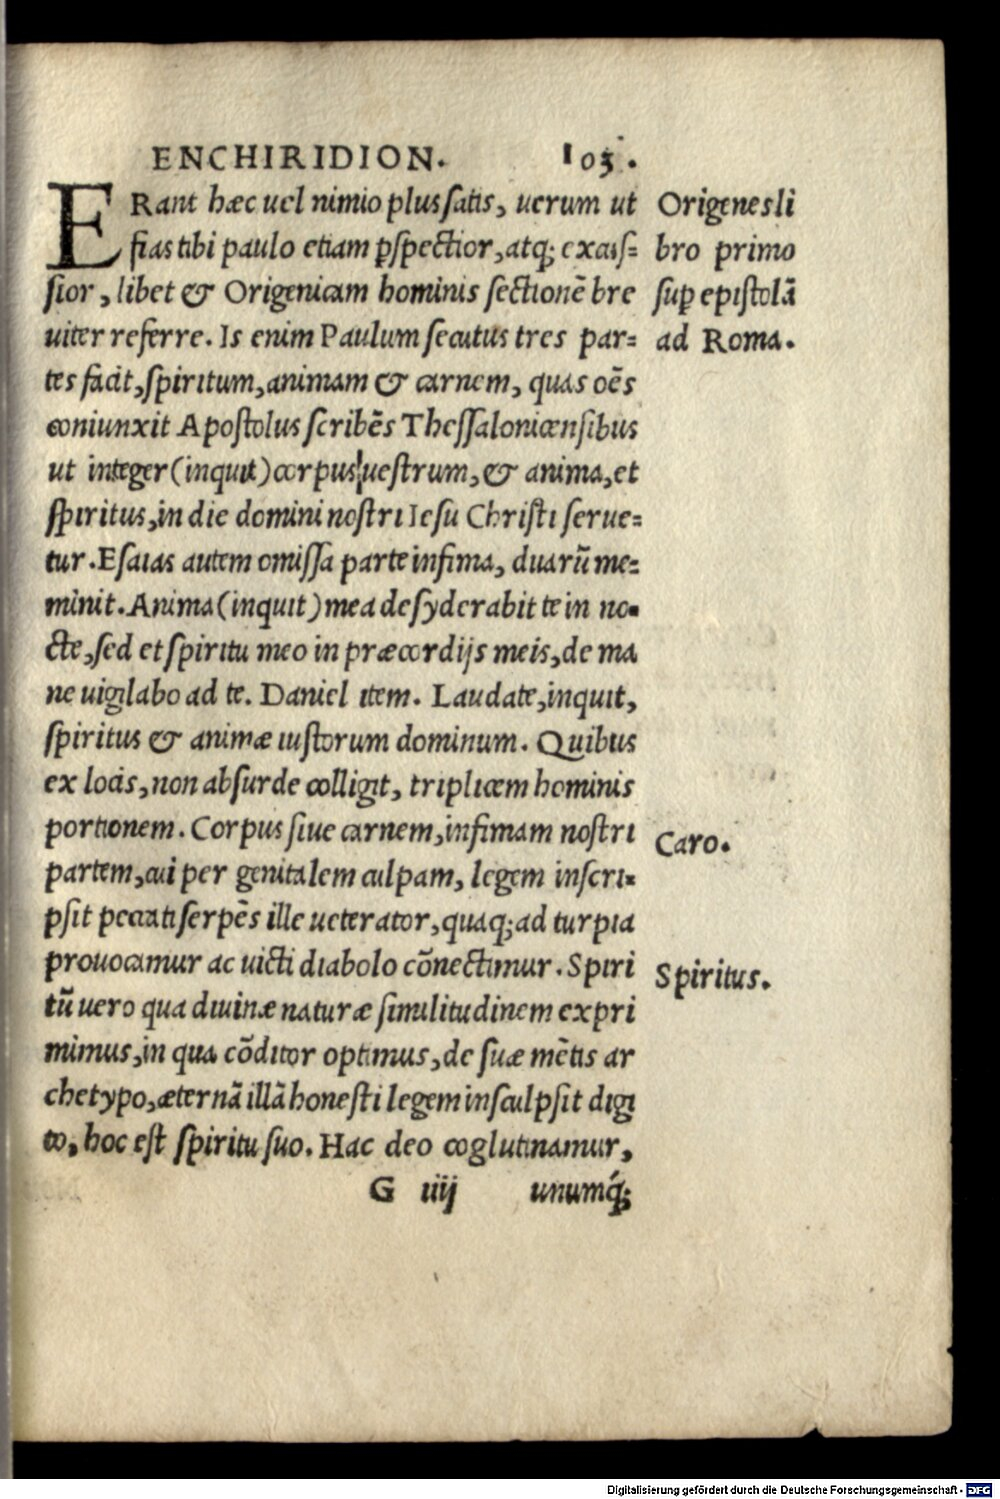 ENCHIRIDION. 103.
ERant hæc uel nimio plus satis, uerum ut
fias tibi paulo etiam ꝑspectior, atq; excuſ⸗
ſior, libet & Origenicam hominis ſectionẽ bre
uiter referre. Is enim Paulum ſecutus tres par⸗
tes facit, ſpiritum, animam & carnem, quas oẽs
coniunxit Apoſtolus ſcribẽs Theſſalonicenſibus
ut integer (inquit) corpus ueſtrum, & anima, et
ſpiritus, in die domini noſtri Ieſu Chriſti ſerue⸗
tur. Eſaias autem omiſſa parte infima, duarũ me⸗
minit. Anima (inquit) mea deſyderabit te in no⸗
cte, ſed et ſpiritu meo in præcordijs meis, de ma
ne uigilabo ad te. Daniel item. Laudate, inquit,
ſpiritus & animæ iuſtorum dominum. Quibus
ex locis, non abſurde colligit, triplicem hominis
portionem. Corpus ſiue carnem, infimam noſtri
partem, cui per genitalem culpam, legem inſcri⸗
pſit peccati ſerpẽs ille ueterator, quaq; ad turpia
prouocamur ac uicti diabolo cõnectimur. Spiri
tũ uero qua diuinæ naturæ ſimilitudinem expri
mimus, in qua cõditor optimus, de ſuæ mẽtis ar
chetypo, æternã illã honeſti legem inſculpſit digi
to, hoc eſt ſpiritu ſuo. Hac deo coglutinamur,
G iiij unumq́;
Origenes li
bro primo
ſuꝑ epiſtolã
ad Roma.
Caro.
Spiritus.
Digitalisierung gefördert durch die Deutsche Forschungsgemeinschaft - DFG